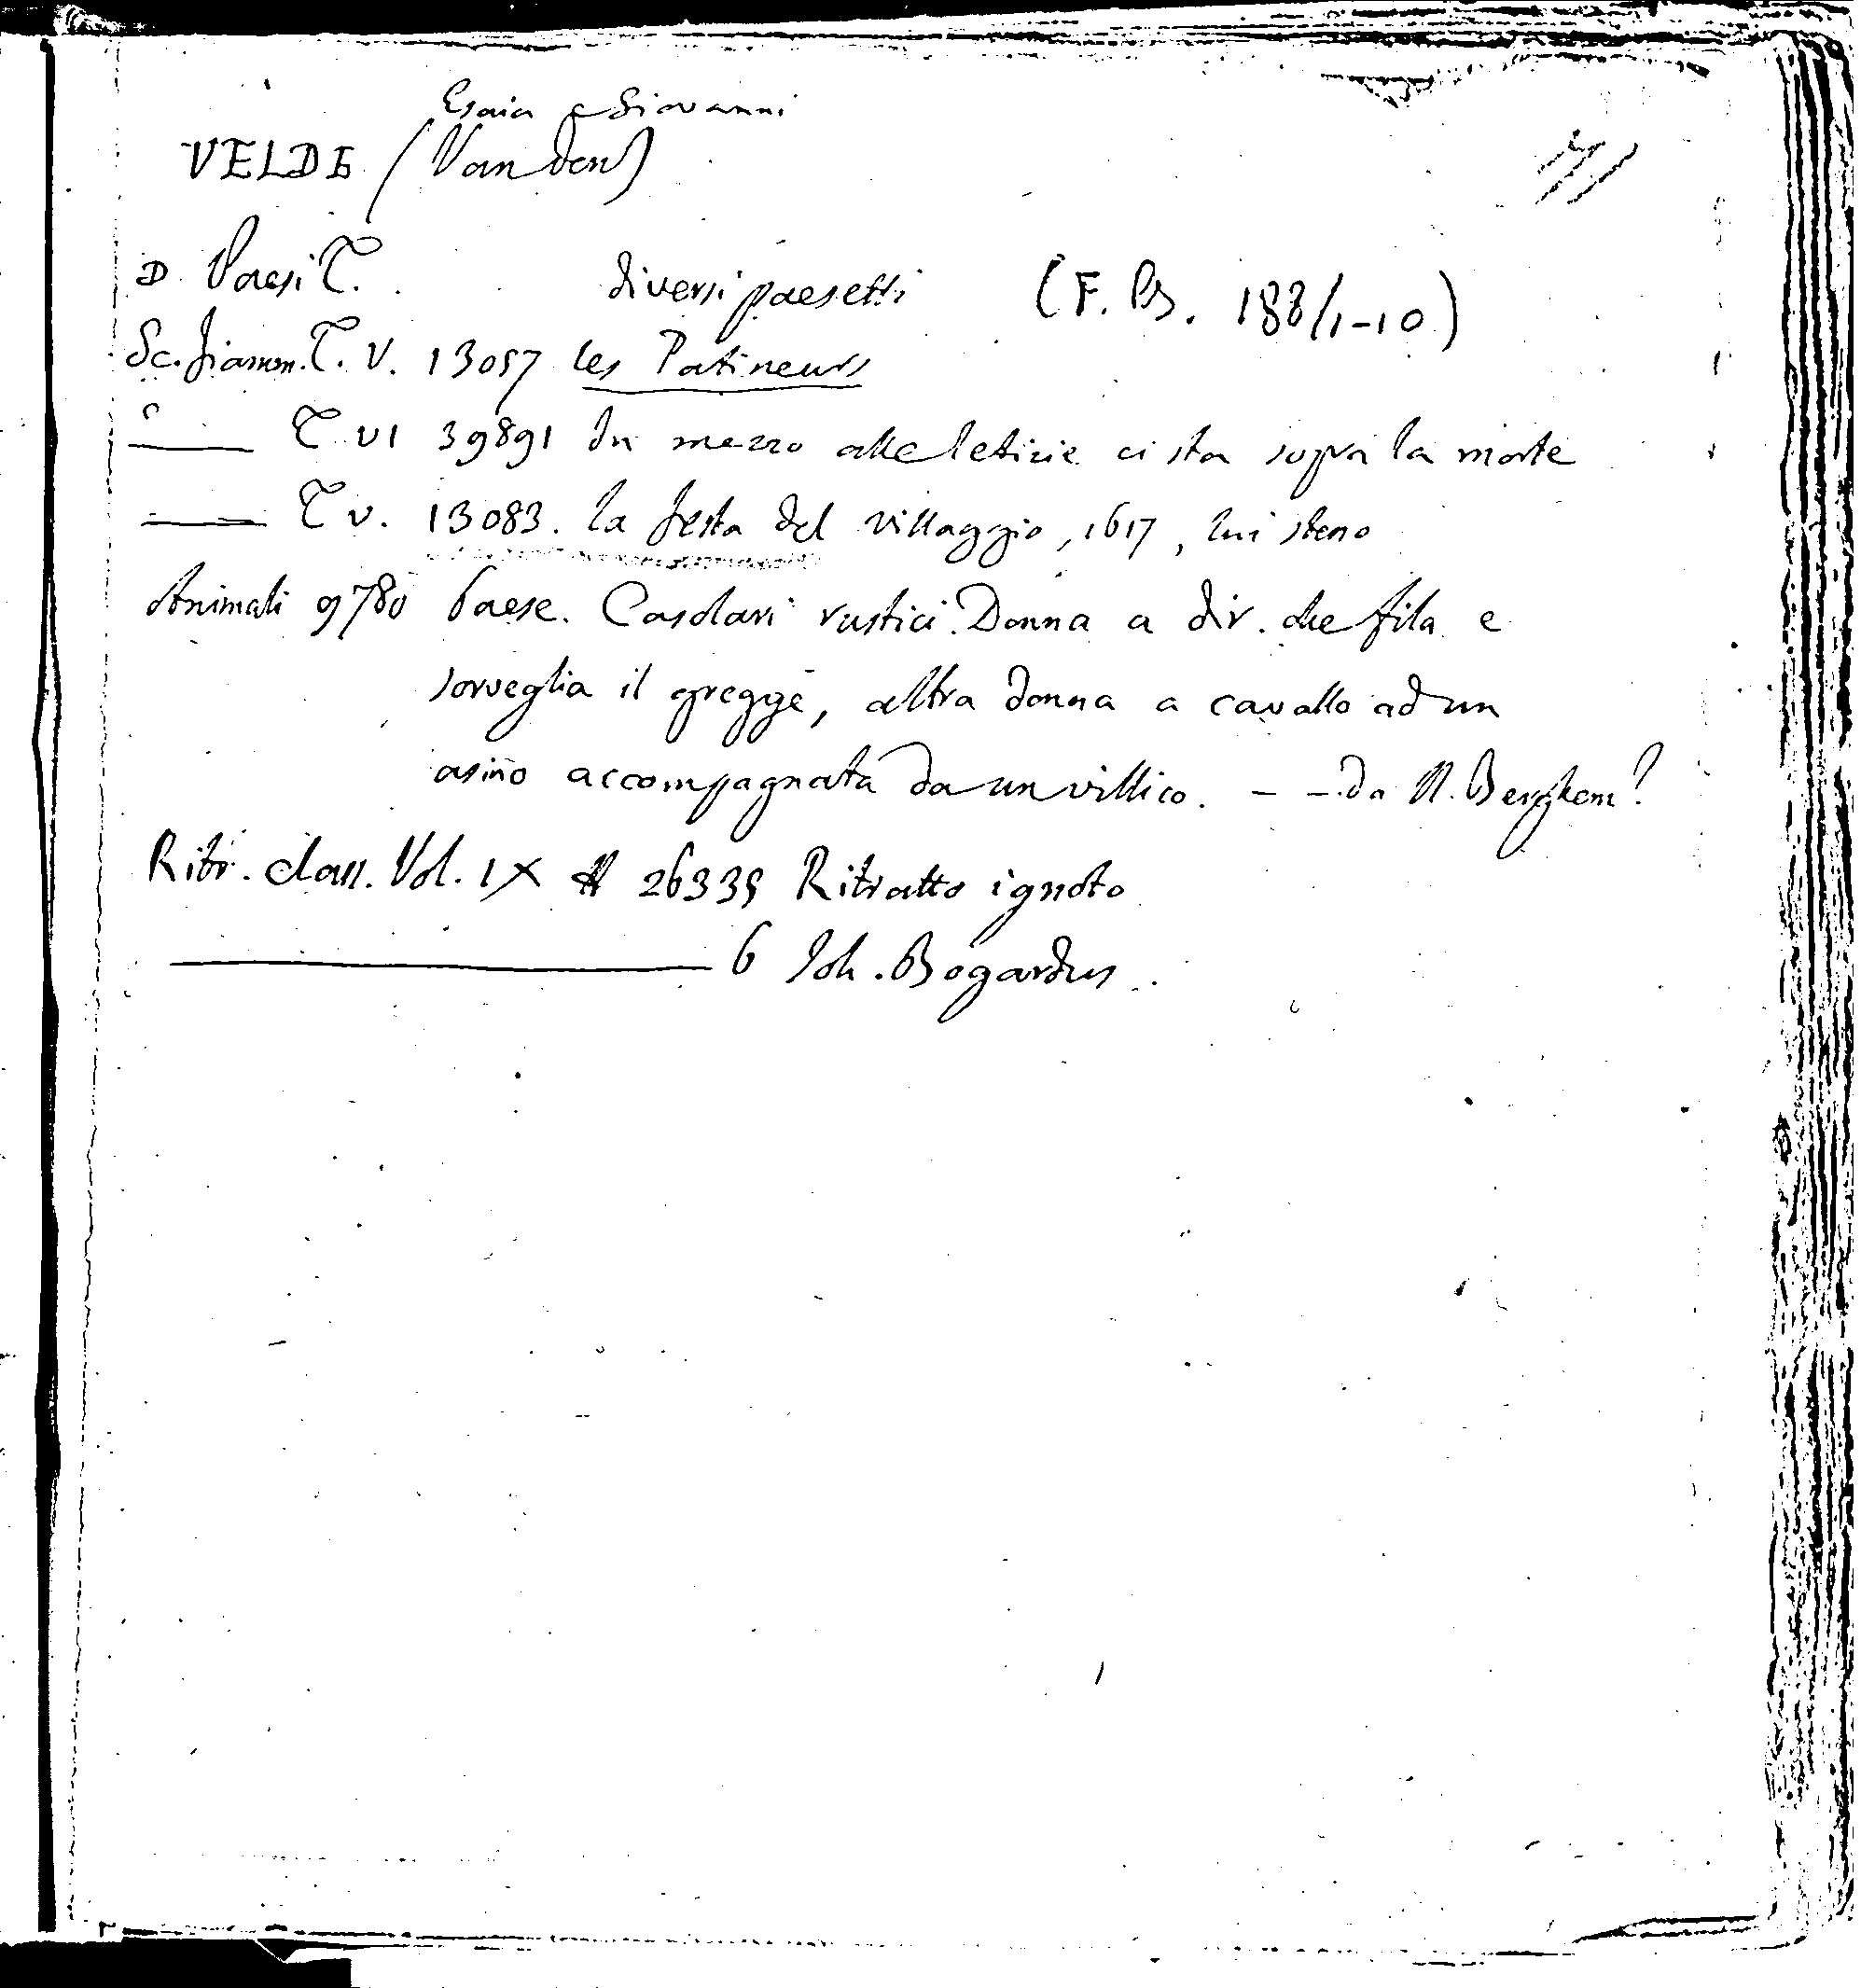 Esaia e Giovanni
VELDE (Van den)
D Paesi T. diversi paesetti (F. Ps. 188/1-10)
Sc. fiamm. T. V. 13057 les Patineurs
T VI 39891 In mezzo alle letizie ci sta sopra la morte
T V. 13083. la festa del villaggio, 1617, lui steno
Animali 9780 Paese. Casolari rustici. Donna a dir. che fila e
sorveglia il gregge, altra donna a cavallo ad un
asino accompagnata da un villico. - - da N. Berghem?
Ritr. class. Vol. IX 26335 Ritratto ignoto
6 Joh. Bogardus